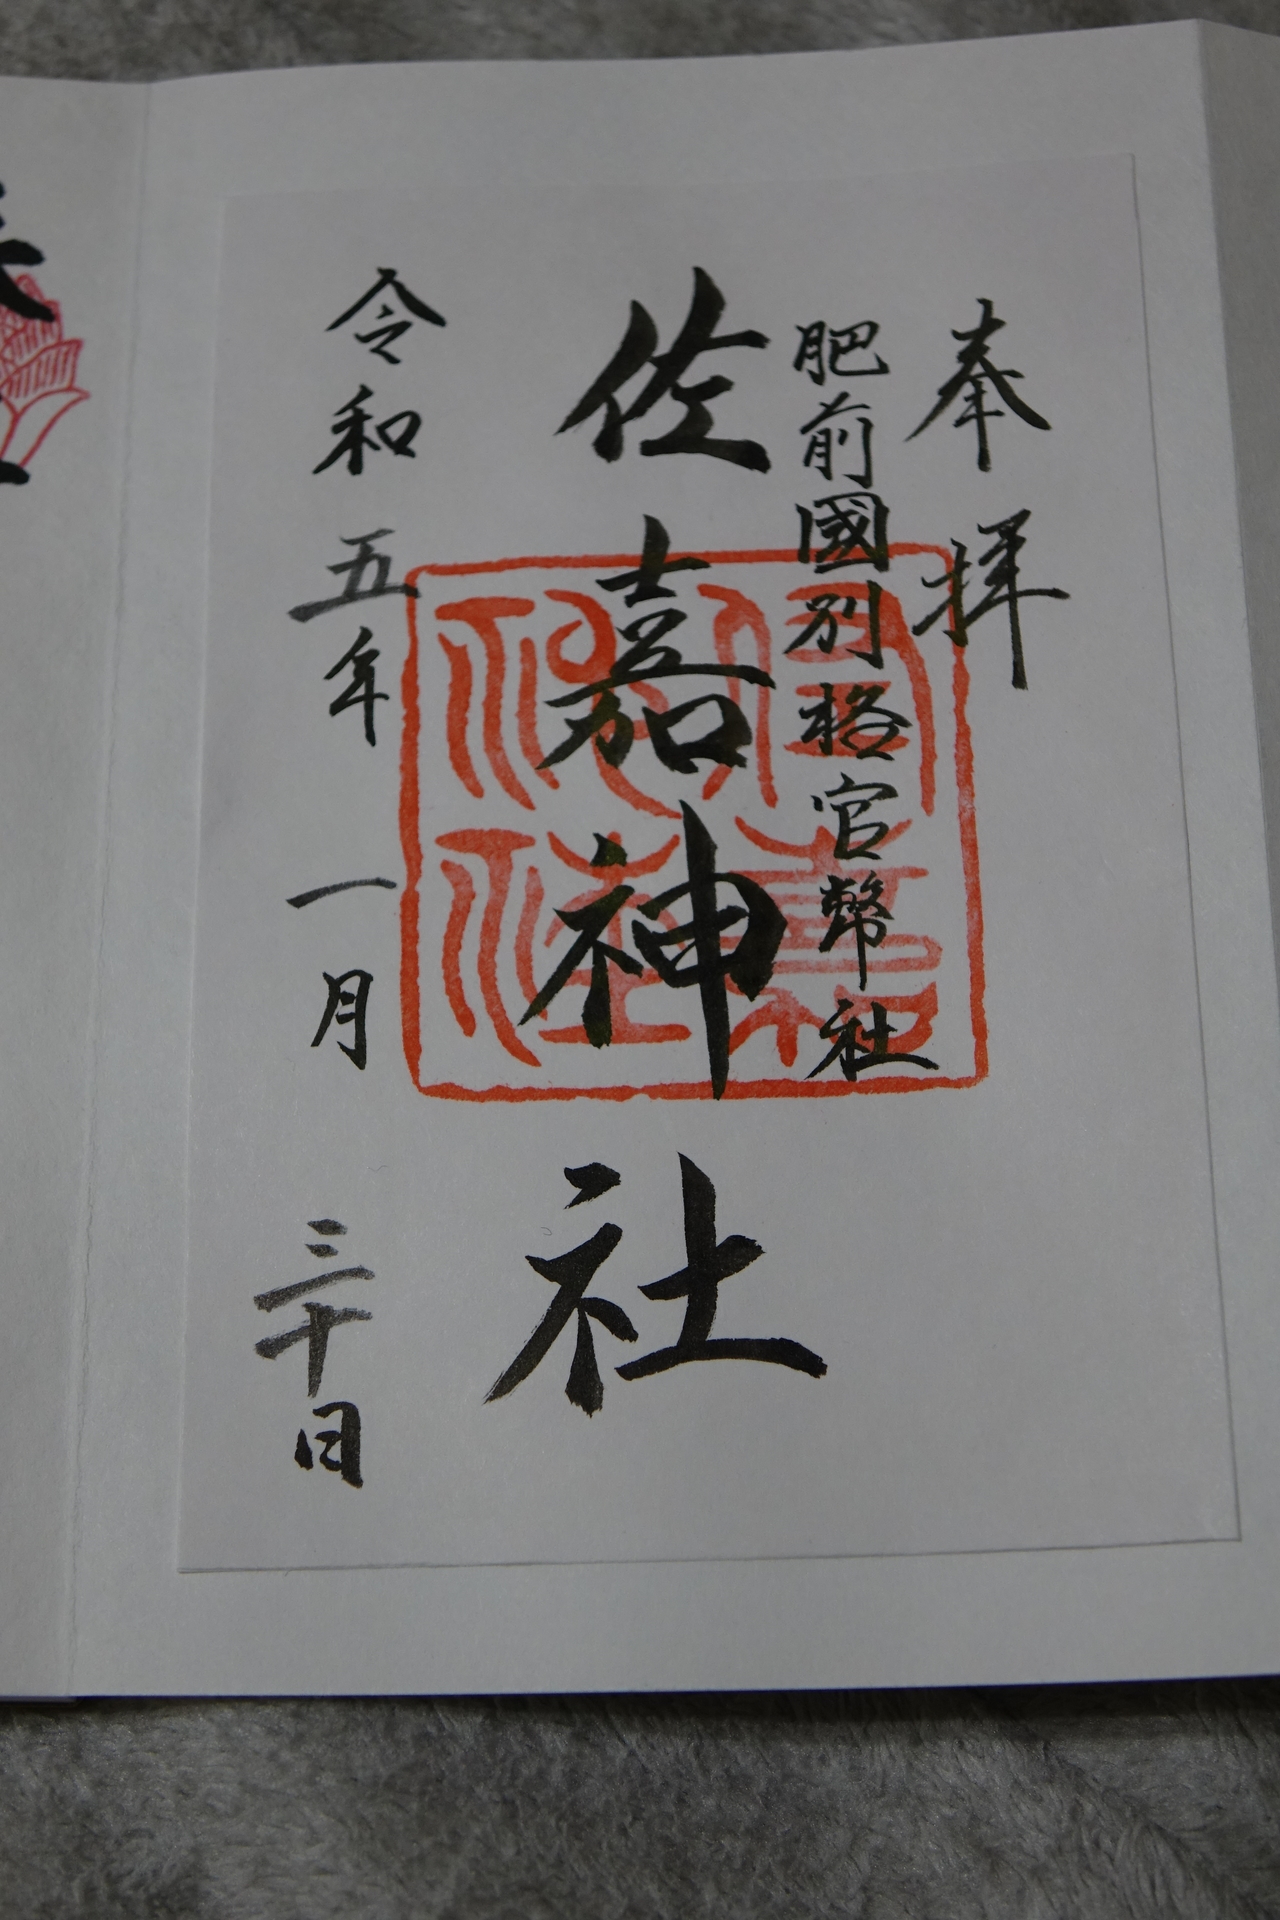 奉拝
肥前國別格官幣社
佐嘉神社
令和五年一月三十日